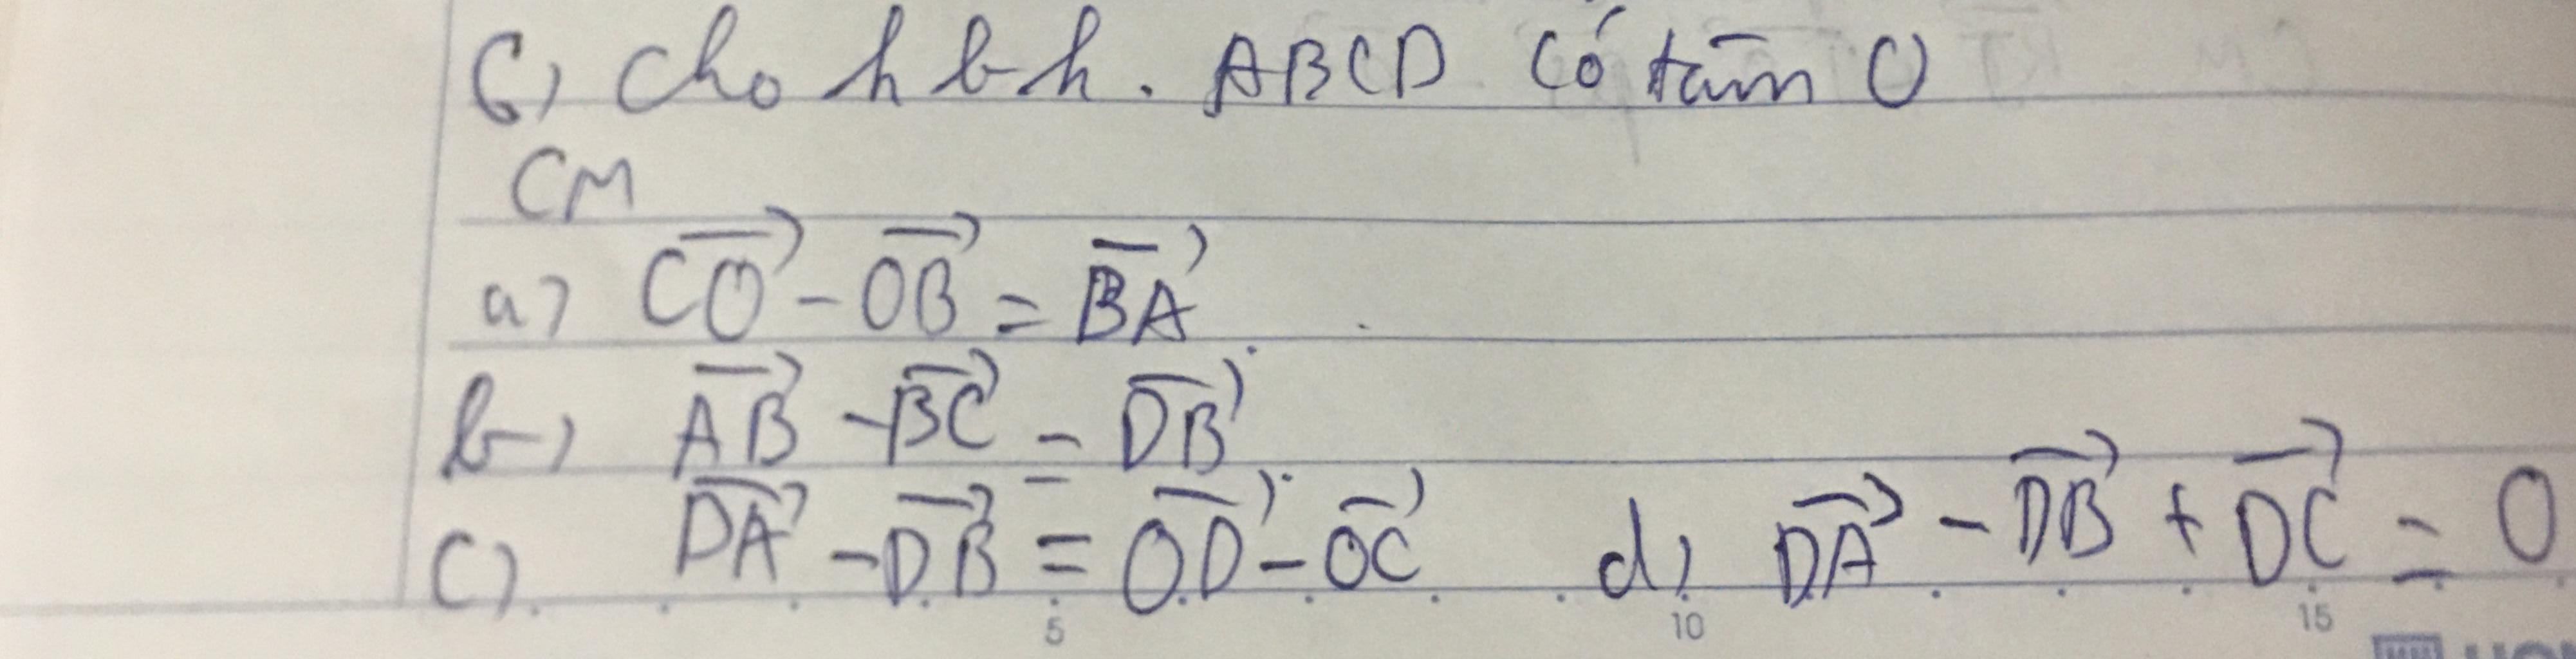 6) Cho hbh. ABCD có tâm O
CM
a) $\overrightarrow{CO} - \overrightarrow{OB} = \overrightarrow{BA}$.
b) $\overrightarrow{AB} - \overrightarrow{BC} = \overrightarrow{DB}$.
c) $\overrightarrow{DA} - \overrightarrow{DB} = \overrightarrow{OD} - \overrightarrow{OC}$ d) $\overrightarrow{DA} - \overrightarrow{DB} + \overrightarrow{DC} = 0$
5 10 15